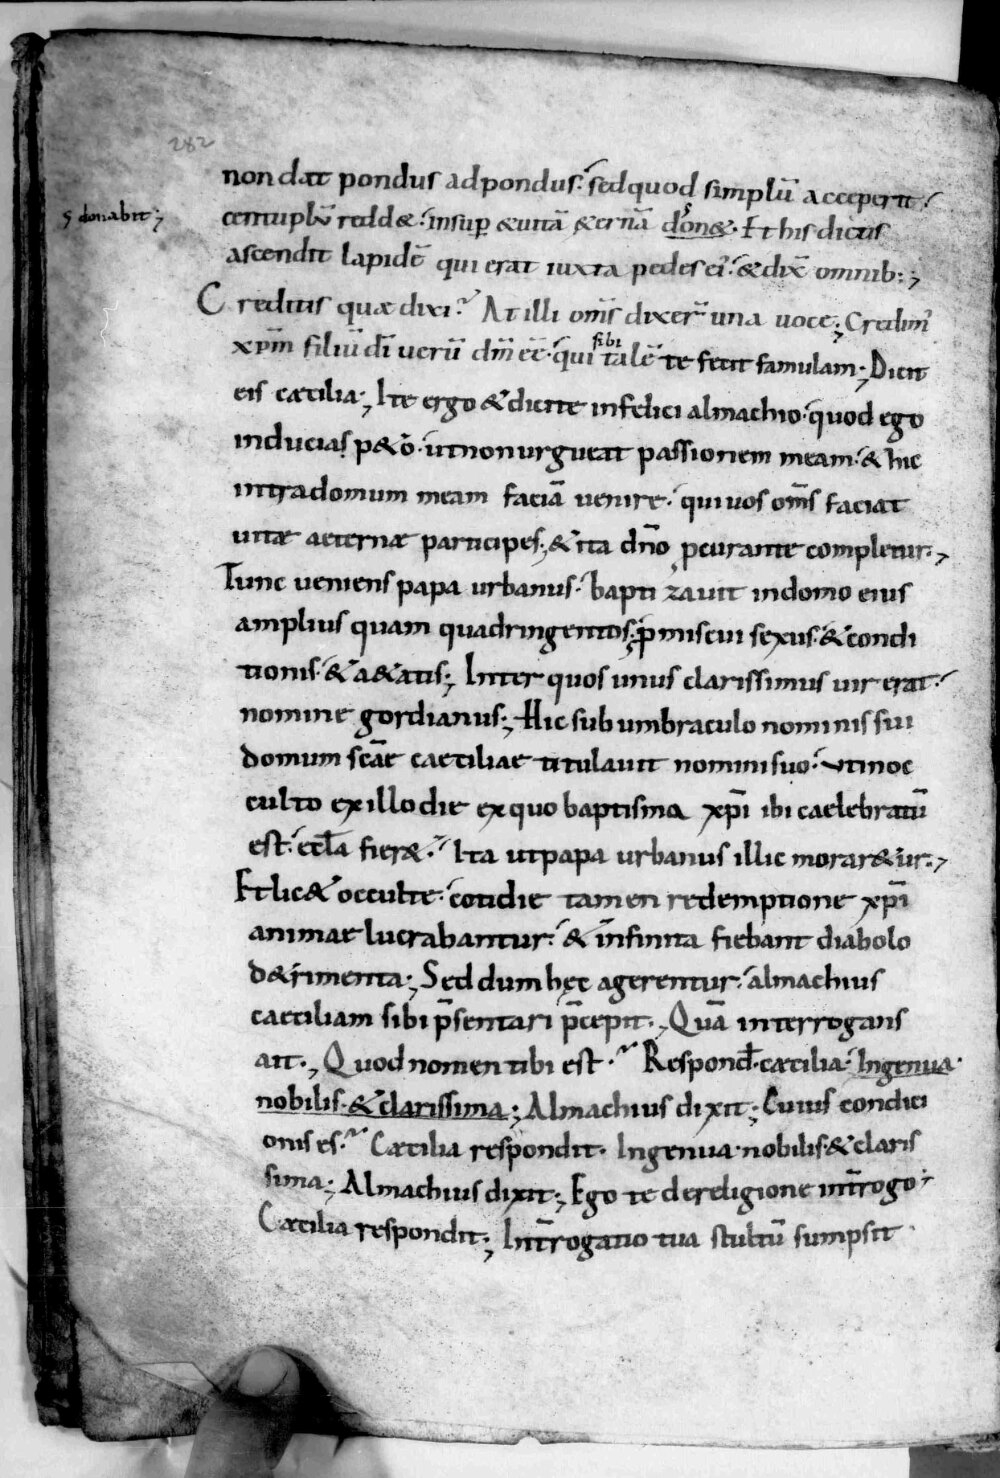 282
non dat pondus ad pondus. sed quod simplū acceperit.
ꝯ donabit;
centuplū redd&. insup &uitā &ernā don&. Et his dictis
ascendit lapidē qui erat iuxta pedes ei'. & dix̄ omnib:;
Creditis quæ dixi? At illi om̄s dixer̄ una uoce; Credim'
xp̄m filiū dī uerū dn̄m eē. qui sibi talē te fecit famulam; Dicit
eis cæcilia; Ite ergo & dicite infelici almachio. quod ego
inducias p&o. ut non urgueat passionem meam. & hic
intra domum meam faciā uenire. qui uos om̄s faciat
uitæ aeternæ participes; & ita dn̄o ꝓcurante completur;
Tunc ueniens papa urbanus. baptizauit in domo eius
amplius quam quadringentos; ꝓmiscui sexus. & condi
tionis. & a&atis; Inter quos unus clarissimus uir erat.
nomine gordianus; Hic sub umbraculo nominis sui
domum scāe caeciliae titulauit nomini suo. ut in oc
culto ex illo die ex quo baptisma xp̄i ibi caelebratū
est. eccl̄a fier&. Ita ut papa urbanus illic morar&ur;
Et lic& occulte. cotidie tamen redemptione xp̄i
animae lucrabantur. & infinita fiebant diabolo
d&rimenta; Sed dum hęc agerentur. almachius
caeciliam sibi p̄sentari p̄cepit; Quā interrogans
ait; Quod nomen tibi est? Respond̄ cæcilia. Ingenua.
nobilis. & clarissima; Almachius dixit; Cuius condici
onis es? Cæcilia respondit. Ingenua. nobilis. & claris
sima; Almachius dixit; Ego te de religione int̄rogo.
Cæcilia respondit; Int̄rogatio tua stultū sumpsit